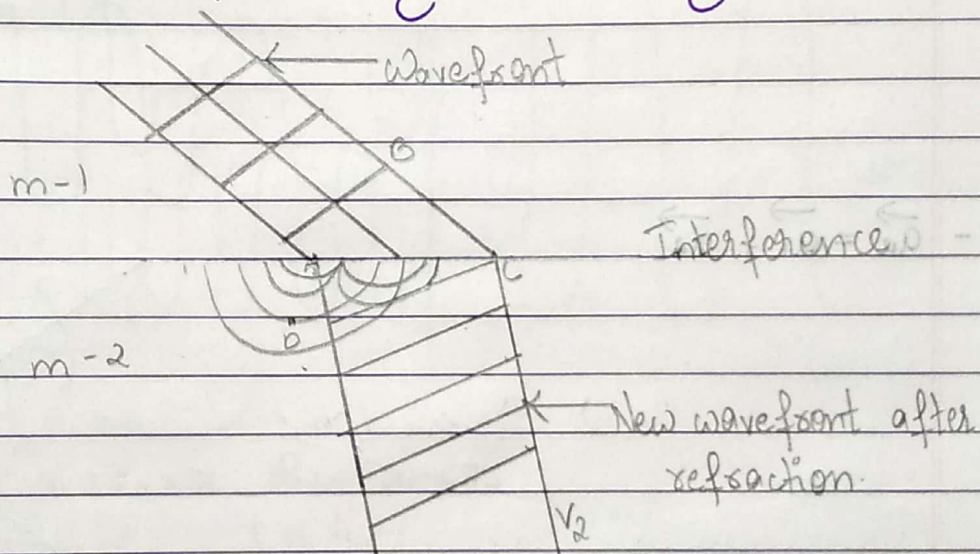 Wavefront
B
m-1
Interference
A
C
D
m-2
New wavefront after
refraction.
V2